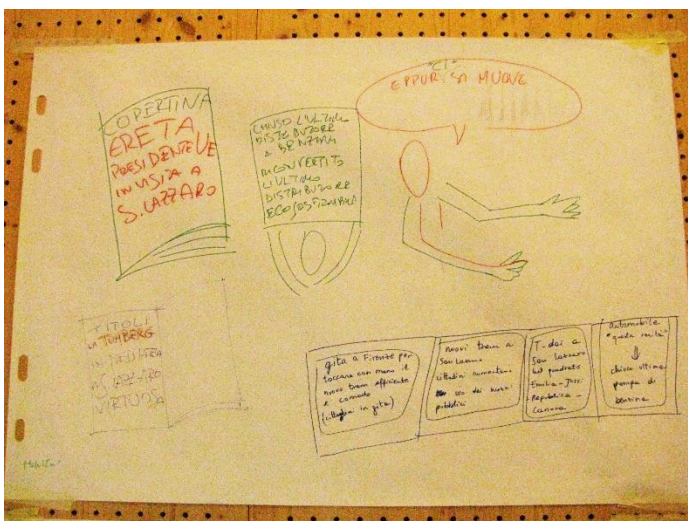 COPERTINA
ERETA
PRESIDENTE UE
IN VISITA A
S. LAZZARO
CHIUSO L'ULTIMO
DISTRIBUTORE
DI BENZINA
RICONVERTITO
L'ULTIMO
DISTRIBUTORE
ECOSOSTENIBILE
"CI"
EPPUR SI MUOVE
TITOLI
LA THUMBERG
IN
S. LAZZARO
VIRTUOSA
gita a Firenze per
toccare con mano il
nuovo tram efficiente
e comodo
(cittadini in gita)
nuovi tram a
San Lazzaro
cittadini aumentano
uso dei mezzi
pubblici
T-dai a
San Lazzaro
nel quadrato
Emilia - Jussi
Repubblica -
Caselle
automobile
"quota unità"
chiusa ultima
pompa di
benzina